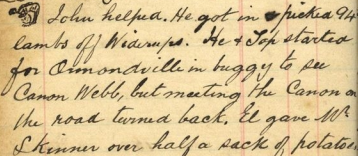 John helped. He got in & picked 94
lambs off Widerups. He & Top started
for Ormondville in buggy to see
Canon Webb, but meeting the Canon on
the road turned back. El gave Mr
Skinner over half a sack of potatoes